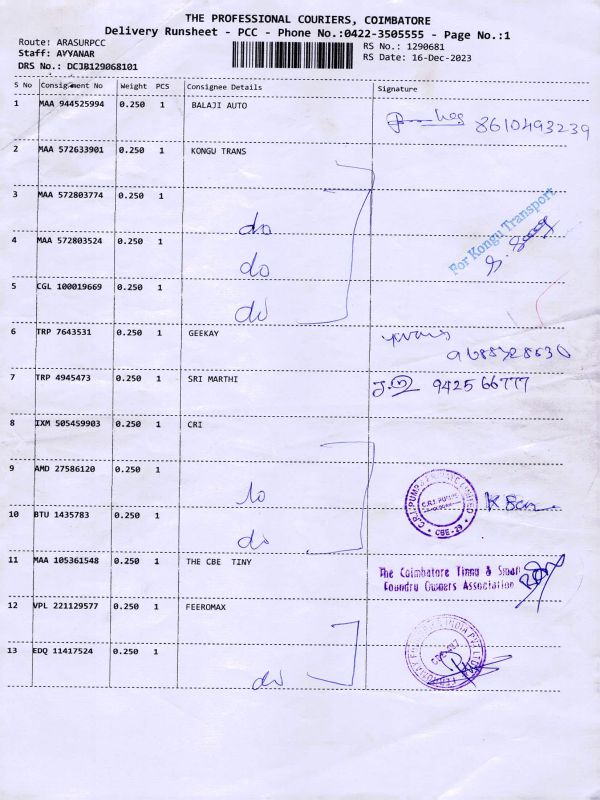 THE PROFESSIONAL COURIERS, COIMBATORE
Delivery Runsheet - PCC - Phone No.:0422-3505555 - Page No.:1
Route: ARASURPCC
RS No.: 1290681
Staff: AYYANAR
RS Date: 16-Dec-2023
DRS No.: DCJB129068101
S No Consignment No Weight PCS Consignee Details Signature
1 MAA 944525994 0.250 1 BALAJI AUTO
8610493239
2 MAA 572633901 0.250 1 KONGU TRANS
3 MAA 572803774 0.250 1
do
For Kongu Transport
4 MAA 572803524 0.250 1
do
5 CGL 100019669 0.250 1
do
6 TRP 7643531 0.250 1 GEEKAY
7 TRP 4945473 0.250 1 SRI MARTHI
9425 66777
8 IXM 505459903 0.250 1 CRI
9 AMD 27586120 0.250 1
do
C.R.I. PUMPS PRIVATE LIMITED
CBE-29
10 BTU 1435783 0.250 1
do
11 MAA 105361548 0.250 1 THE CBE TINY
The Coimbatore Tinny & Small
Foundry Owners Association
12 VPL 221129577 0.250 1 FEEROMAX
INDIA PVT LTD
13 EDQ 11417524 0.250 1
do